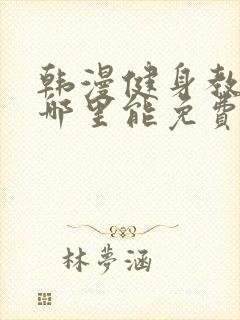 韩漫健身教
哪里能免費
林夢涵